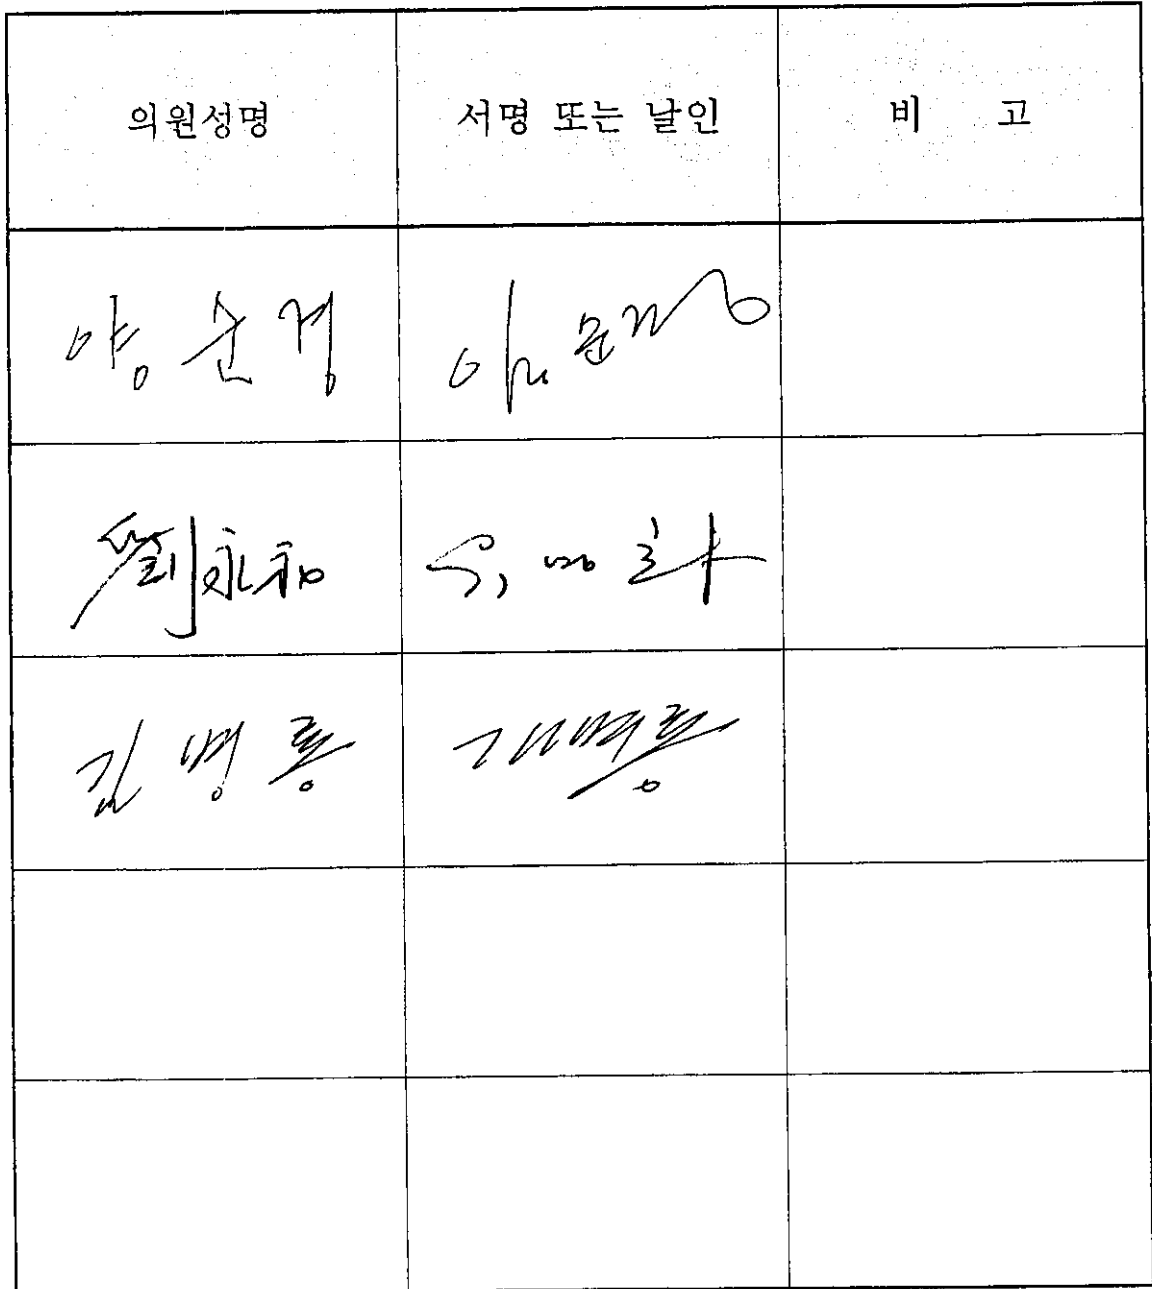 의원성명 서명 또는 날인 비 고
양순경
劉永和
김병룡 김병룡